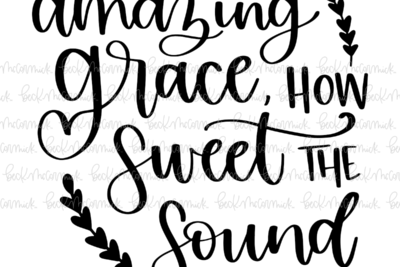 amazing
grace, HOW
sweet THE
sound